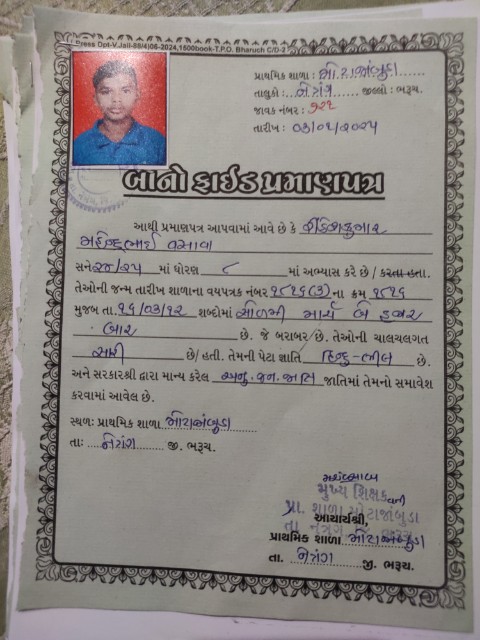 Press Dpt-V.Jail-88(4)06-2024,1500book-T.P.O. Bharuch C/D-2
પ્રાથમિક શાળા : મોટાજાંબુડા
તાલુકો : નેત્રંગ જીલ્લો : ભરૂચ.
જાવક નંબર : ૭૨૧
તારીખ : ૦૩/૦૫/૨૦૨૫
બોનાફાઈડ પ્રમાણપત્ર
આથી પ્રમાણપત્ર આપવામાં આવે છે કે
મહેન્દ્રભાઈ વસાવા
સને ૨૪/૨૫ માં ધોરણ ૮ માં અભ્યાસ કરે છે / કરતા હતા.
તેઓની જન્મ તારીખ શાળાના વયપત્રક નંબર ૧૮૧૬(૩) ના ક્રમ ૧૮૧૬
મુજબ તા. ૧૬/૦૩/૧૨ શબ્દોમાં સોળમી માર્ચ બે હજાર
બાર છે. જે બરાબર છે. તેઓની ચાલચલગત
સારી છે/ હતી. તેમની પેટા જ્ઞાતિ હિન્દુ-ભીલ છે.
અને સરકારશ્રી દ્વારા માન્ય કરેલ અનુ.જન.જાતિ જાતિમાં તેમનો સમાવેશ
કરવામાં આવેલ છે.
સ્થળ: પ્રાથમિક શાળા મોટાજાંબુડા
તાઃ નેત્રંગ જી. ભરૂચ.
મુખ્ય શિક્ષક
પ્રા. શાળા મોટાજાંબુડા
આચાર્યશ્રી,
તા. નેત્રંગ, જિ. ભરૂચ
પ્રાથમિક શાળા મોટાજાંબુડા
તા. નેત્રંગ જી. ભરૂચ.